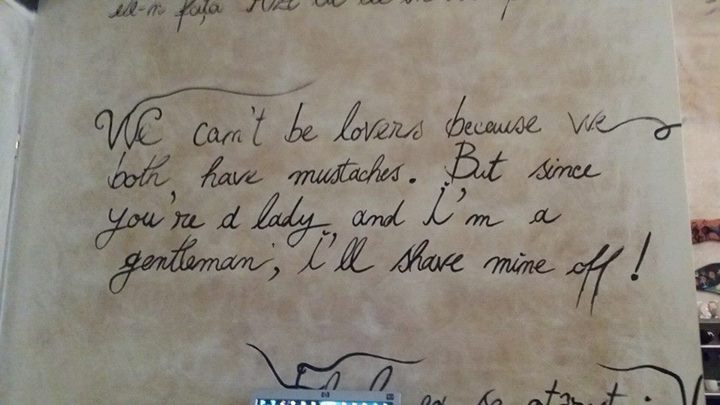 We can't be lovers because we
both have mustaches. But since
you're a lady and i'm a
gentleman, i'll shave mine off!
hp